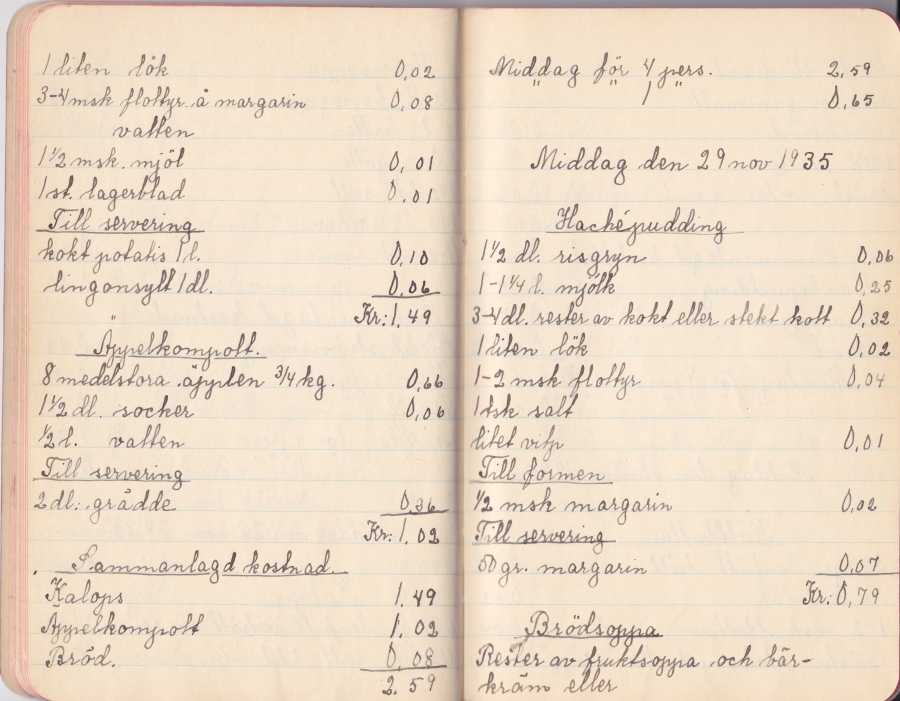 1 liten lök 0,02
3-4 msk flottyr å margarin 0,08
vatten
1 1/2 msk. mjöl 0,01
1 st. lagerblad 0,01
Till servering
kokt potatis 1 l. 0,10
lingonsylt 1 dl. 0,06
Kr: 1,49
Äppelkompott.
8 medelstora äpplen 3/4 kg. 0,66
1 1/2 dl. socker 0,06
1/2 l. vatten
Till servering
2 dl. grädde 0,36
Kr: 1,02
Sammanlagd kostnad.
Kalops 1.49
Äppelkompott 1,02
Bröd. 0,08
2,59
Middag för 4 pers. 2,59
" " 1 " 0,65
Middag den 29 nov 1935
Hachépudding
1 1/2 dl. risgryn 0,06
1-1 1/4 l. mjölk 0,25
3-4 dl. rester av kokt eller stekt kött 0,32
1 liten lök 0,02
1-2 msk flottyr 0,04
1 tsk salt
litet vitp 0,01
Till formen
1/2 msk margarin 0,02
Till servering
50 gr. margarin 0,07
Kr: 0,79
Brödsoppa
Rester av fruktsoppa och bär-
kräm eller